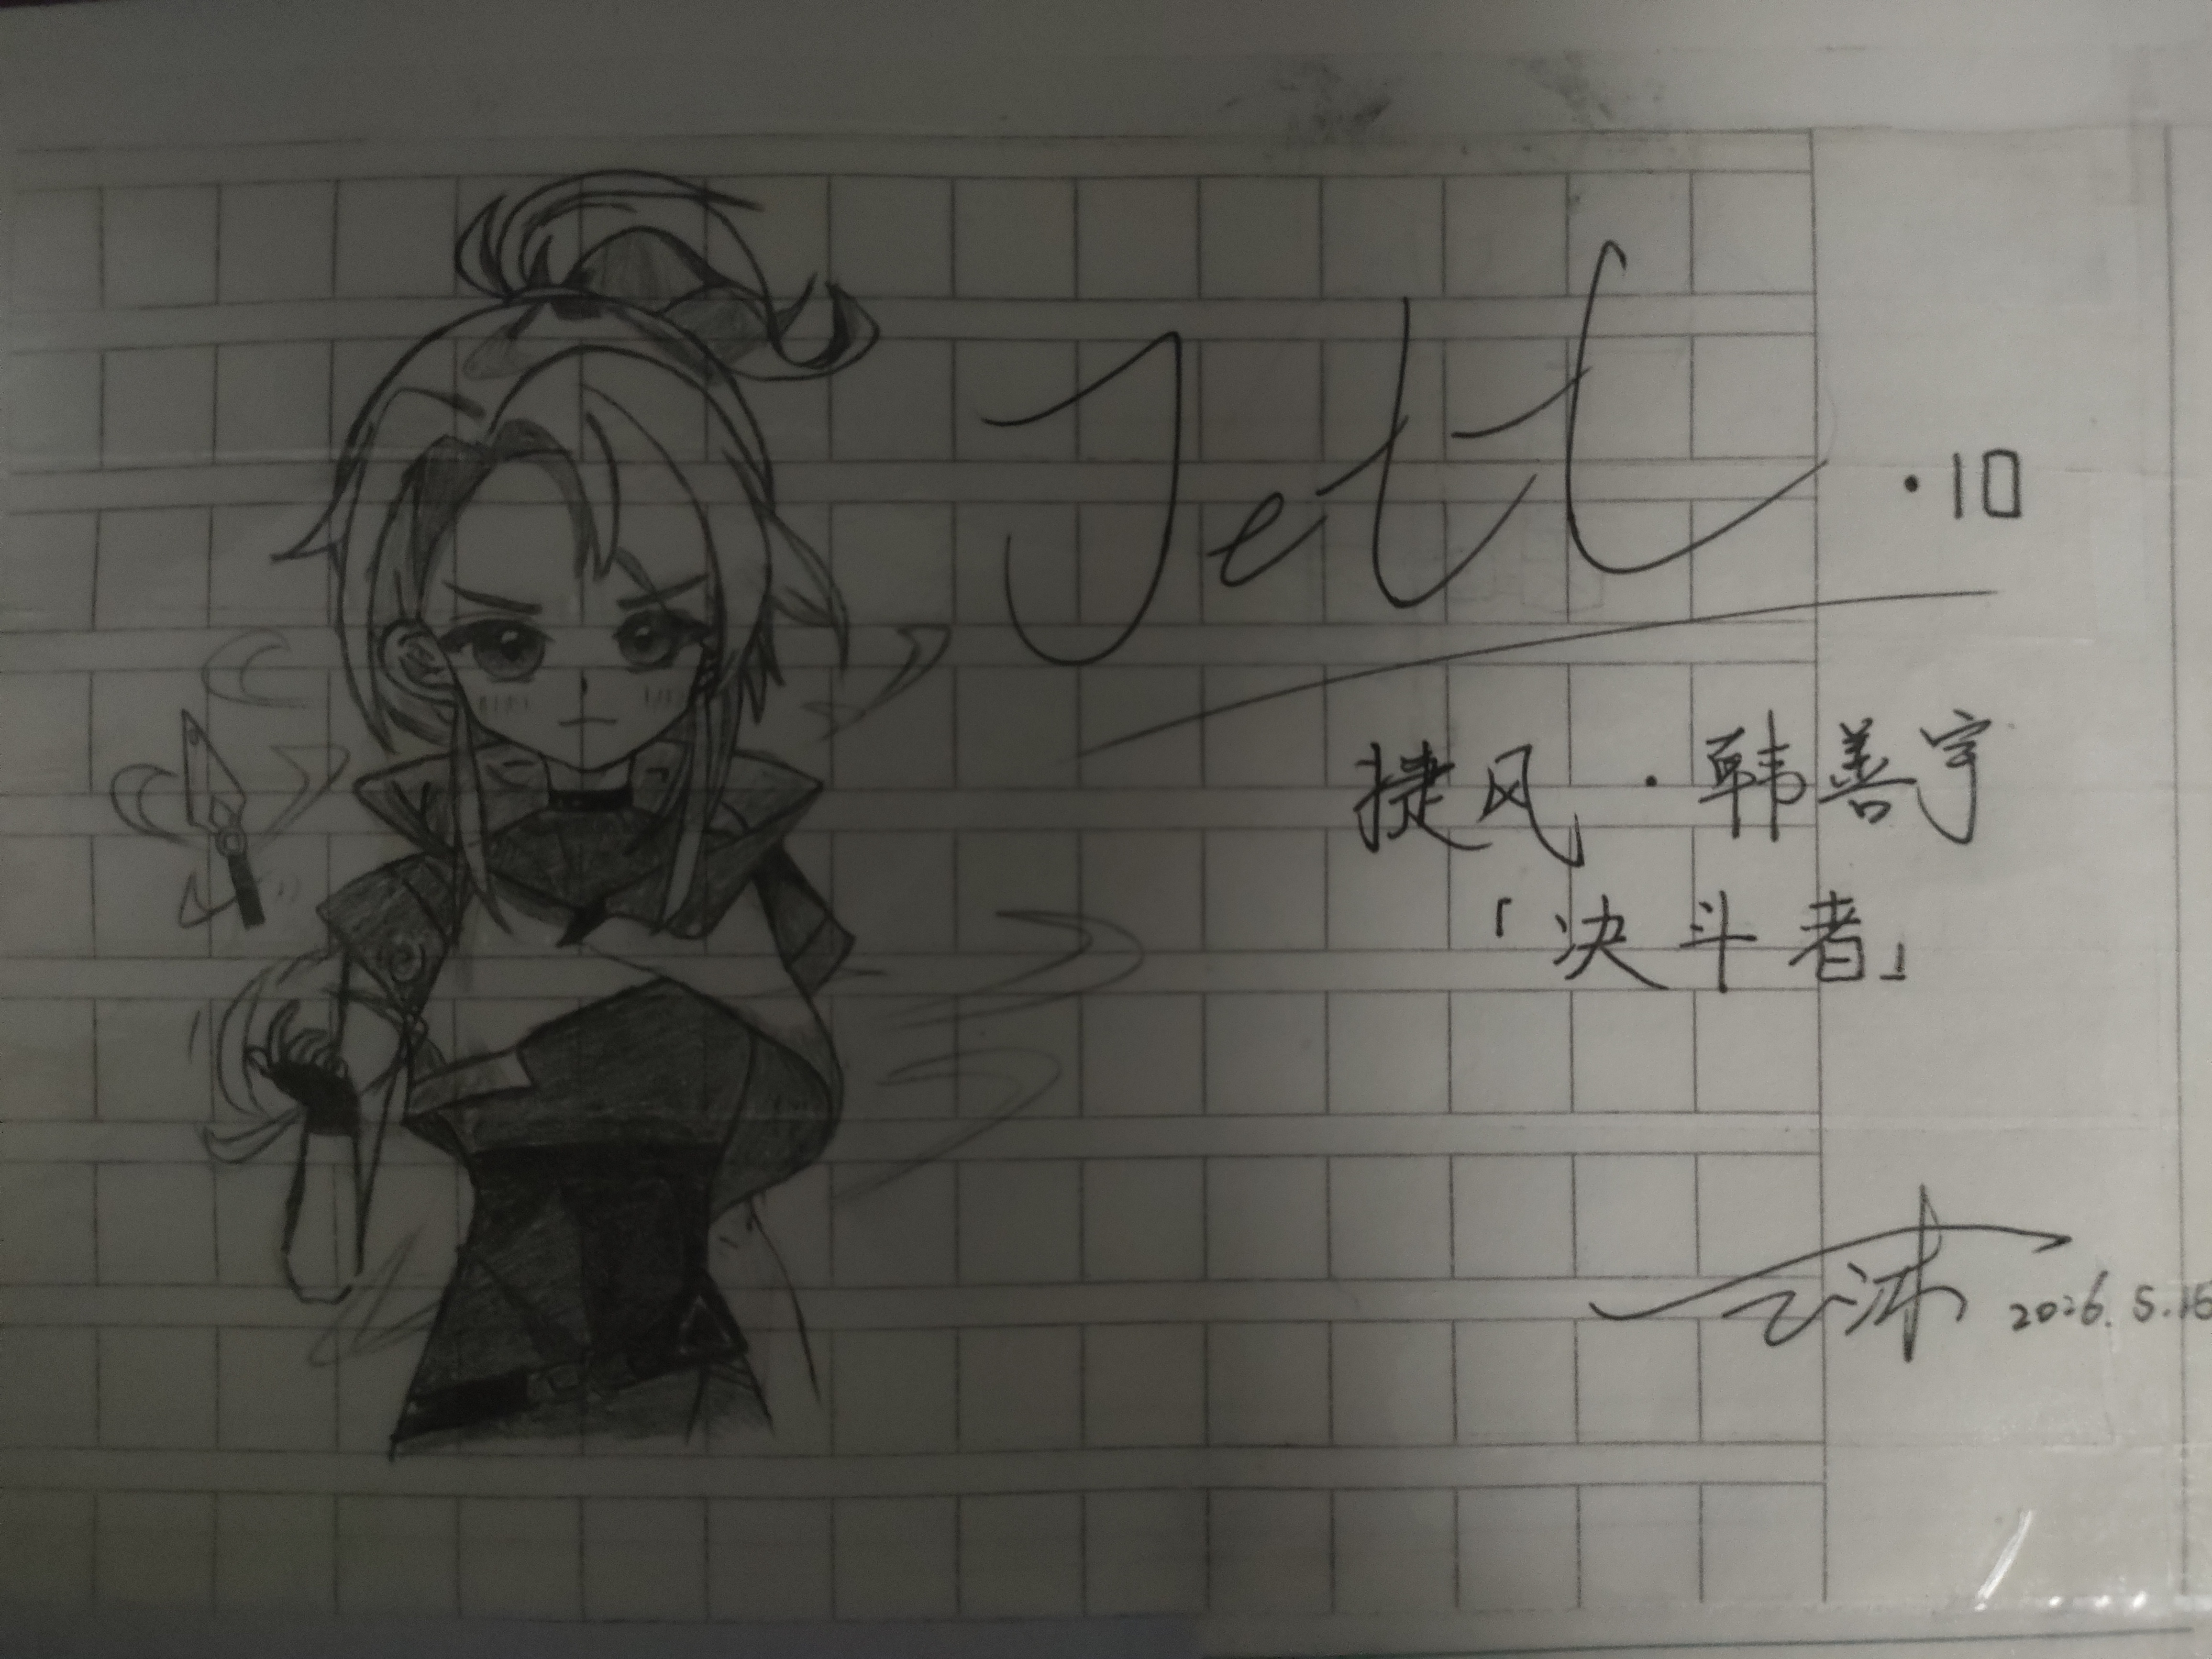 Jett ·10
捷风·韩善宇
「决斗者」
2026.5.16